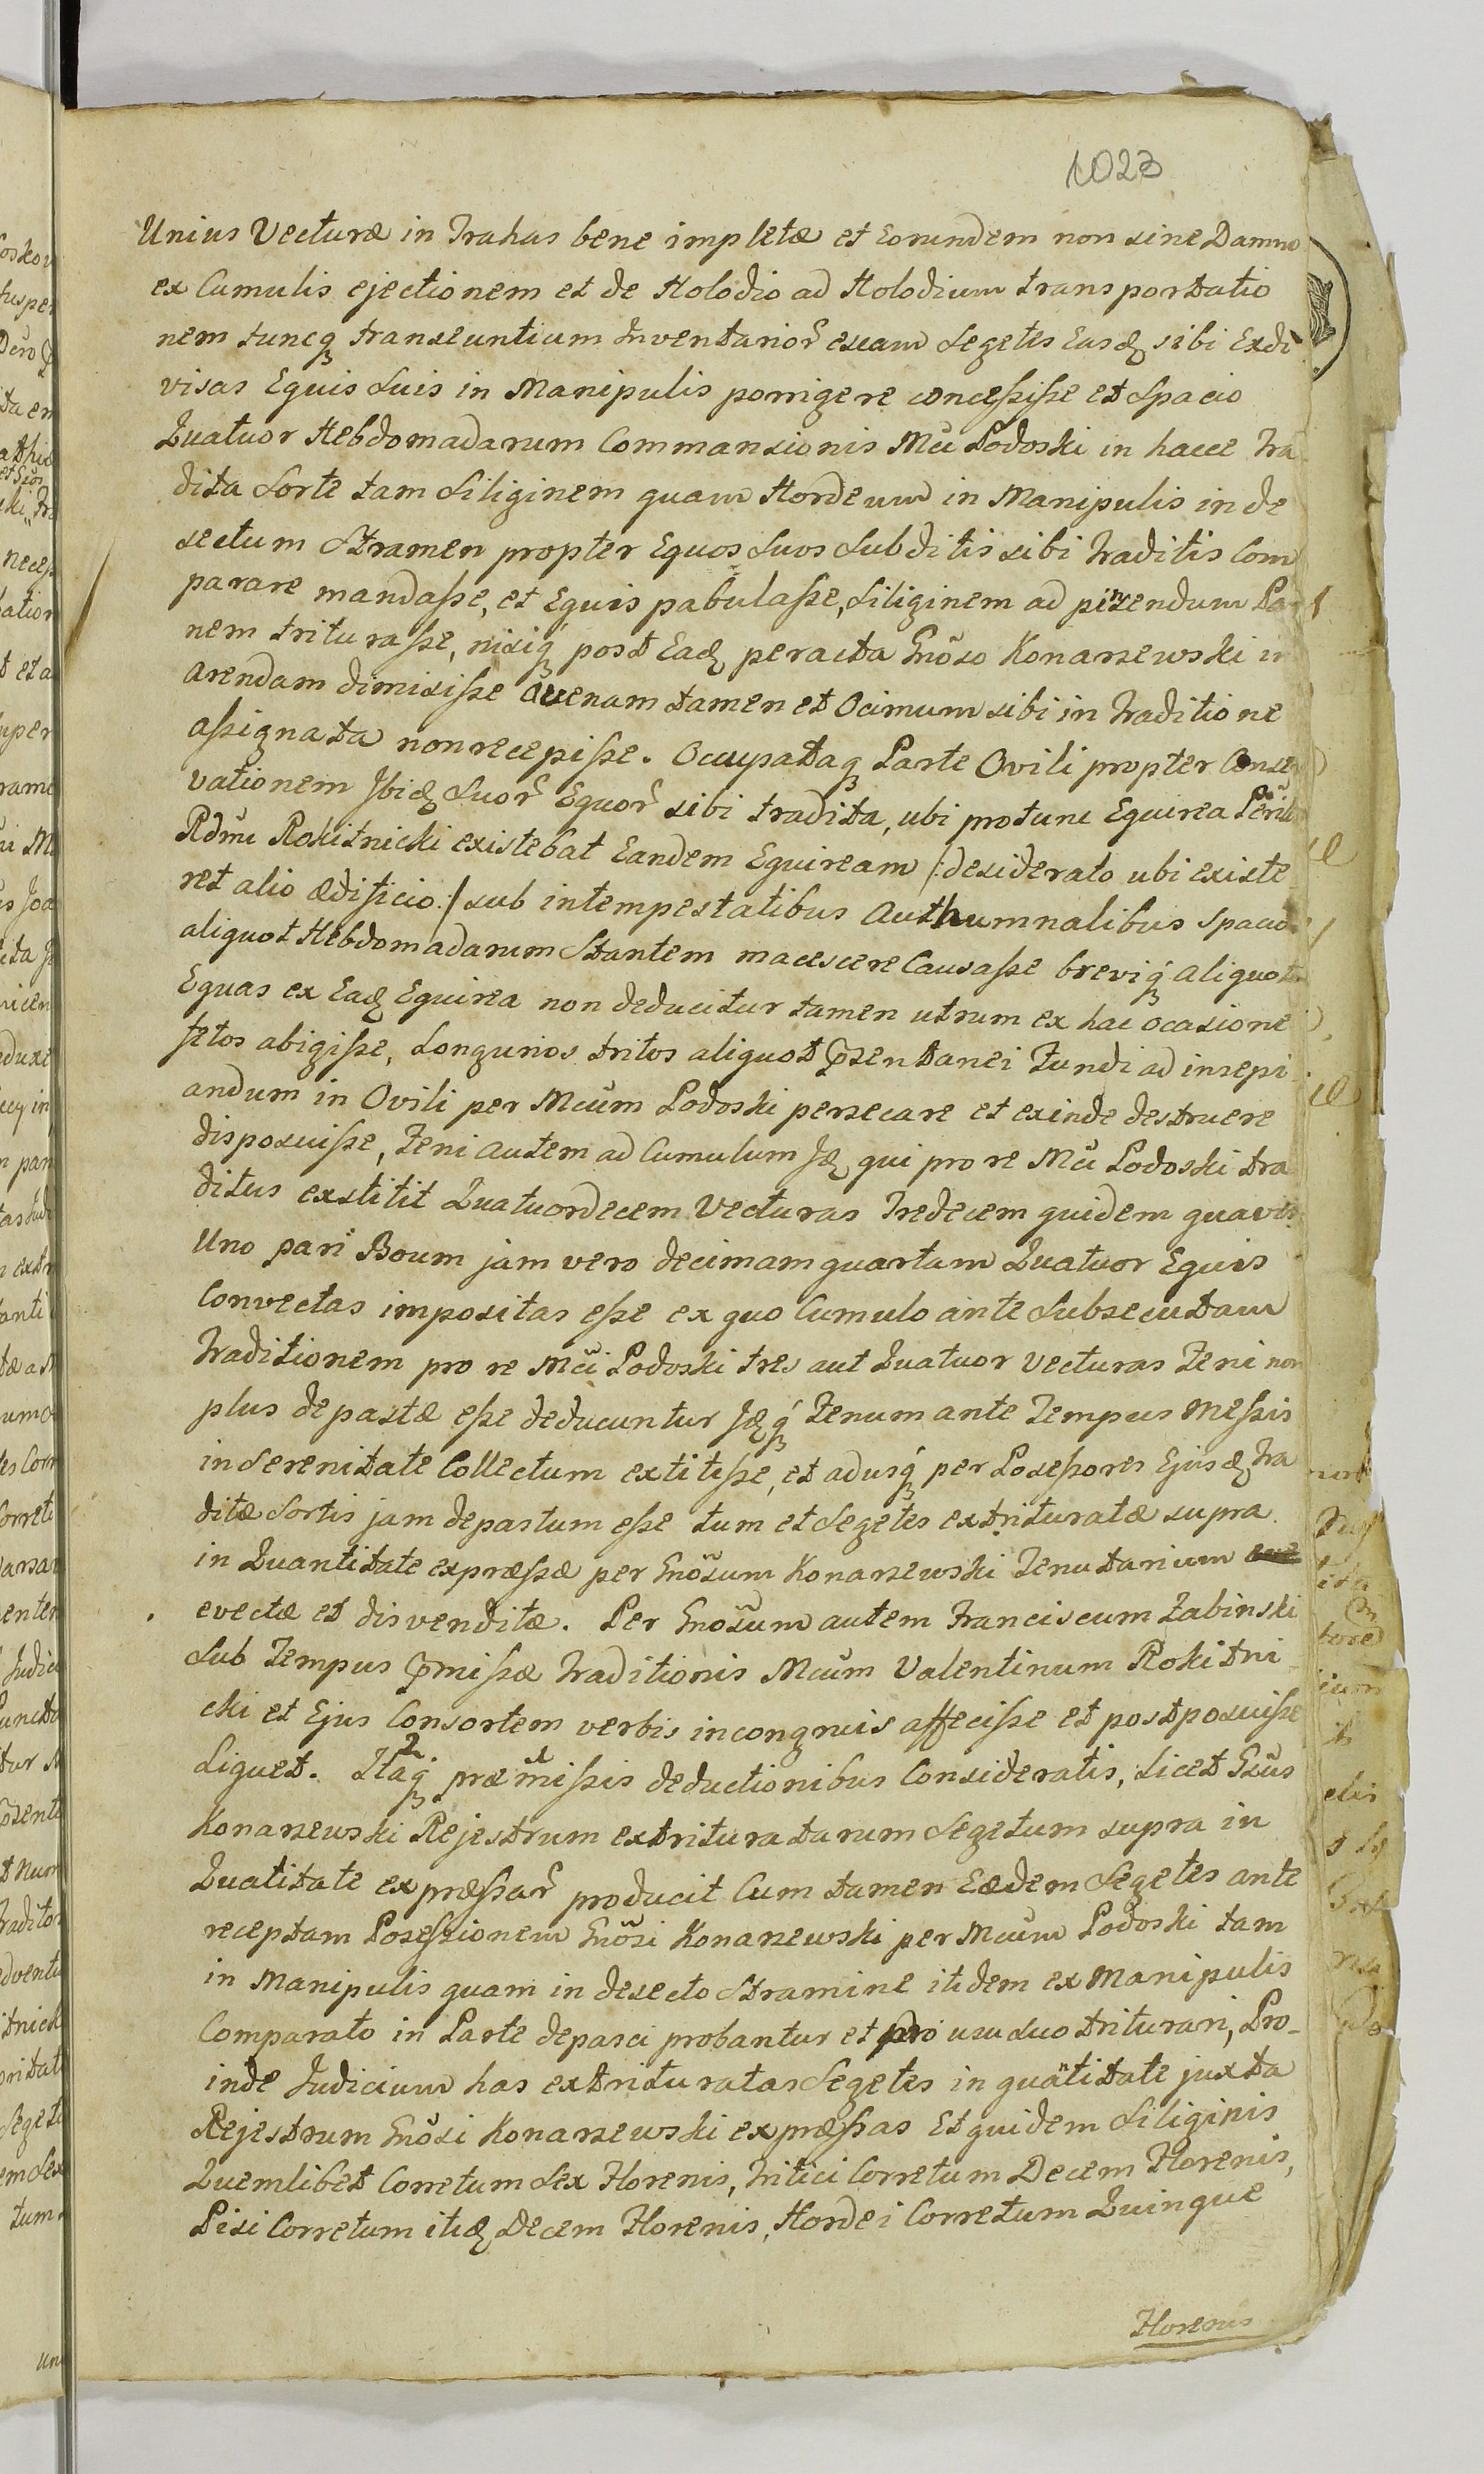 1023
Unius Vecturæ in Trahas bene impletæ et Eorundem non sine Damno
ex Cumulis ejectionem et de Holodio ad Holodium transportatio
nem tuncq transeuntium Inventarior escam Segetis Easd sibi Exdi
visas Equis Suis in Manipulis porrigere concessisse et Spacio
Quatuor Hebdomadarum Commansionis Mci Podoski in hacce Tra
dita Sorte tam Siliginem quam Hordeum in Manipulis in de
sectum Stramen propter Equos Suos Subditis sibi Traditis Com
parare mandasse, et Equis pabulasse, Siliginem ad pinsendum Pa
nem triturasse, nisiq post Ead peracta Gnoso Konarzewski in
arendam dimisisse avenam tamen et Ocimum sibi in Traditione
assignata non recepisse. Occupataq Parte Ovili propter Conser
vationem Ibid Suor Equor sibi tradita, ubi protunc Equirea
Rdmi Rokitnicki existebat Eandem Equiream /: desiderato ubi existe
ret alio ædificio :/ sub intempestatibus Authumnalibus spacio
aliquot Hebdomadarum Stantem macescere Causasse breviq aliquot
Equas ex Ead Equirea non deducitur tamen utrum ex hac ocasione
fetos abigisse, Longurios tritos aliquot p̃sentanei Fundi ad insepi
andum in Ovili per Mcum Podoski persecare et exinde destruere
disposuisse, Feni autem ad Cumulum Id qui pro re Mci Podoski tra
ditus exstitit Quatuordecem Vecturas Tredecem quidem quavis
Uno pari Boum jam vero decimam quartam Quatuor Equis
Convectas impositas esse ex quo Cumulo ante Subsecutam
Traditionem pro re Mci Podoski tres aut Quatuor Vecturas Feni non
plus depastæ esse deducuntur Idq Fenum ante Tempus Messis
in Serenitate Collectum extitisse, et adusq per Posessores Ejusd Tra
ditæ Sortis jam depastum esse tum et Segetes extrituratæ supra
in Quantitate expressæ per Gnosum Konarzewski Tenutarium
evectæ et disvenditæ. Per Gnosum autem Franciscum Zabinski
Sub Tempus p̃missæ Traditionis Mcum Valentinum Rokitni
cki et Ejus Consortem verbis incongruis affecisse et postposuisse
Liquet. Itaq præmissis deductionibus Consideratis, Licet Gsus
Konarzewski Rejestrum extrituratarum Segetum supra in
Quatitate expressar producit Cum tamen Eædem Segetes ante
receptam Posessionem Gnosi Konarzewski per Mcum Podoski tam
in Manipulis quam in desecto Stramine itidem ex Manipulis
Comparato in Parte depasci probantur et pro usu suo triturari, Pro-
inde Judicium has extrituratas Segetes in quãtitate juxta
Rejestrum Gnosi Konarzewski expressas Et quidem Siliginis
Quemlibet Corretum Sex Florenis, Tritici Corretum Decem Florenis,
Pisi Corretum itid Decem Florenis, Hordei Corretum Quinque
Florenis